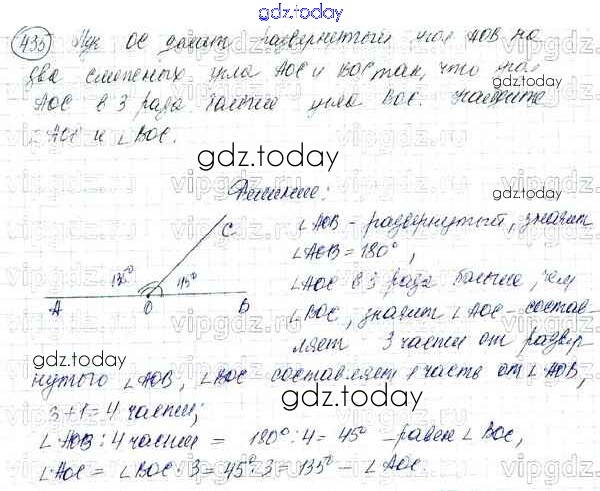 gdz.today
435 Луч OC делит развернутый угол AOB на
два смежных угла AOC и BOC так, что угол
AOC в 3 раза больше угла BOC. Найдите
∠AOC и ∠BOC.
gdz.today
gdz.today
Решение:
C
∠AOB - развернутый, значит
∠AOB = 180°,
135° 45°
∠AOC в 3 раза больше, чем
A O B
∠BOC, значит ∠AOC - состав-
gdz.today
ляет 3 части от развер-
нутого ∠AOB, ∠BOC составляет 1 часть от ∠AOB,
gdz.today
3+1=4 части;
∠AOB : 4 части = 180° : 4 = 45° - равен ∠BOC,
∠AOC = ∠BOC · 3 = 45° · 3 = 135° - ∠AOC.